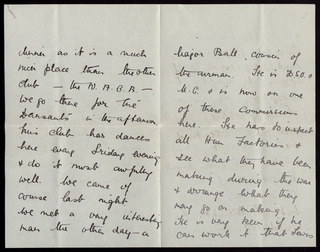 dinner as it is a much
nicer place than the other
club – the W.A.C.B. –
we go there for thé
Dansants in the afternoon
this club has dances
here every Friday evening
& do it most awfully
well. We came of
course last night.
We met a very interesting
man the other day – a
Major Ball, cousin of
the airman. He is D.S.O. &
M.C. & is now on one
of these Commissions
here. He has to inspect
all Hun Factories &
see what they have been
making during the war
& arrange what they
may go on making.
He is very keen if he
can work it that Lewis